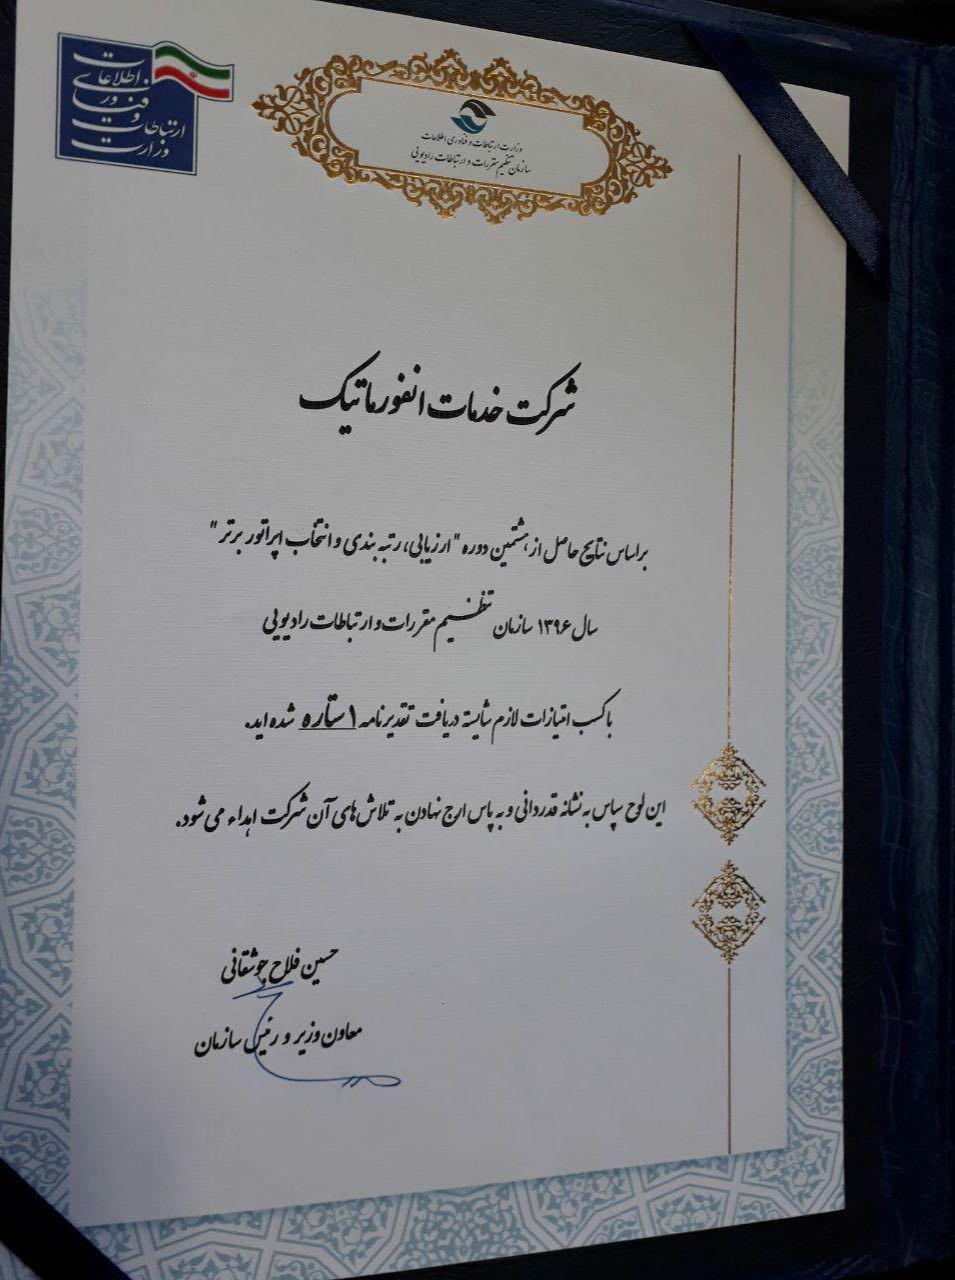 وزارت
ارتباطات
و
فناوری
اطلاعات
وزارت ارتباطات و فناوری اطلاعات
سازمان تنظیم مقررات و ارتباطات رادیویی
شرکت خدمات انفورماتیک
براساس نتایج حاصل از هشتمین دوره "ارزیابی، رتبه بندی و انتخاب اپراتور برتر"
سال ۱۳۹۶ سازمان تنظیم مقررات و ارتباطات رادیویی
با کسب امتیازات لازم شایسته دریافت تقدیرنامه ۱ ستاره شده اید.
این لوح سپاس به نشانه قدردانی و به پاس ارج نهادن به تلاش های آن شرکت اهداء می شود.
حسین فلاح جوشقانی
معاون وزیر و رئیس سازمان